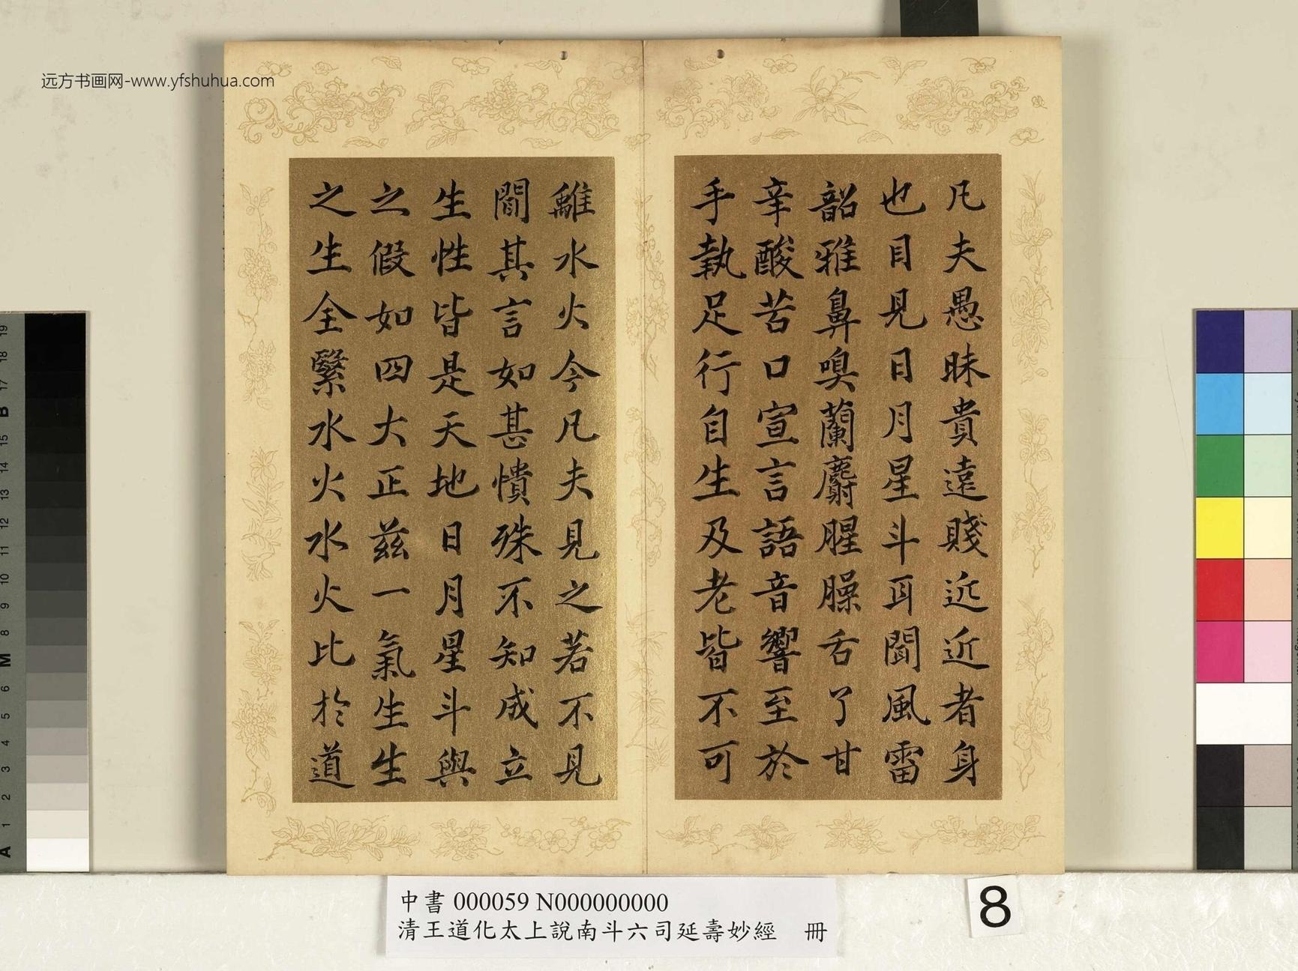 远方书画网-www.yfshuhua.com
凡夫愚昧貴遠賤近近者身
也目見日月星斗耳聞風雷
韶雅鼻嗅蘭麝腥臊舌了甘
辛酸苦口宣言語音響至於
手執足行自生及老皆不可
離水火今凡夫見之若不見
聞其言如甚憒殊不知成立
生性皆是天地日月星斗與
之假如四大正茲一氣生生
之生全繄水火水火比於道
中書 000059 N000000000
清王道化太上說南斗六司延壽妙經 冊
8
19
18
17
B
15
14
13
12
11
10
9
8
M
6
5
4
3
2
1
A